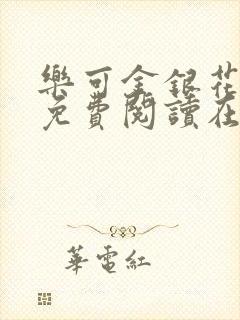 樂可金銀花
免費閱讀在
華電紅